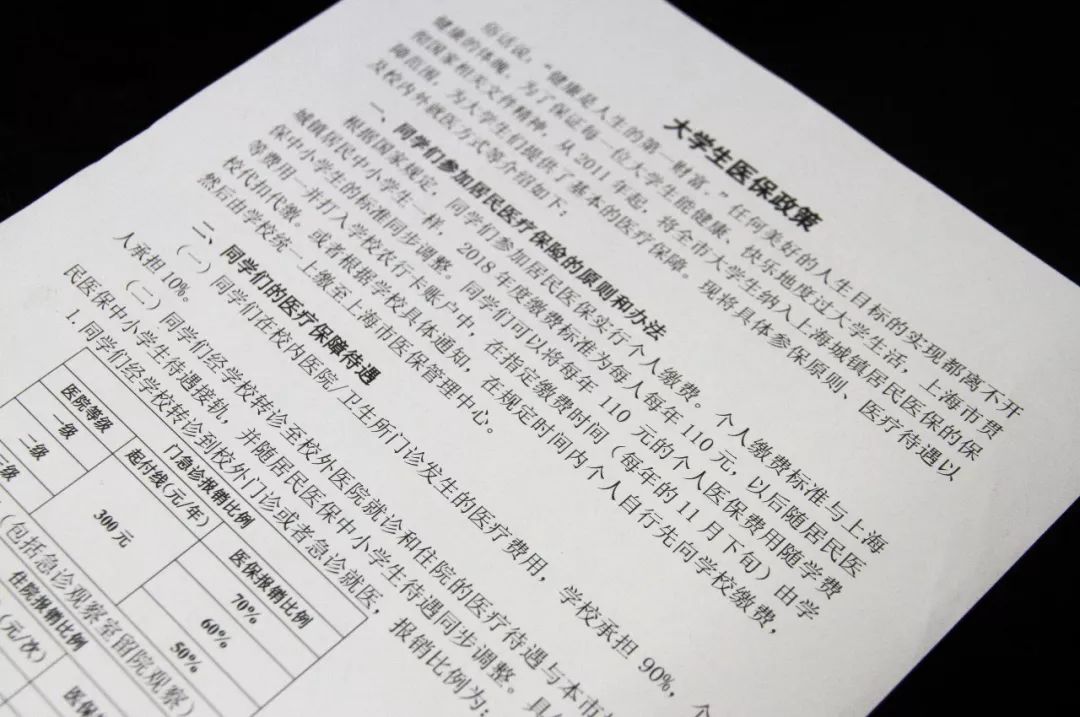 大学生医保政策
俗话说，“健康是人生的第一财富。”任何美好的人生目标的实现都离不开
健康的体魄。为了保证每一位大学生能健康、快乐地度过大学生活，上海市贯
彻国家相关文件精神，从2011年起，将全市大学生纳入上海城镇居民医保的保
障范围，为大学生们提供了基本的医疗保障。现将具体参保原则、医疗待遇以
及校内外就医方式等介绍如下：
一、同学们参加居民医疗保险的原则和办法
根据国家规定，同学们参加居民医保实行个人缴费。个人缴费标准与上海
城镇居民中小学生一样，2018年度缴费标准为每人每年110元，以后随居民医
保中小学生的标准同步调整。同学们可以将每年110元的个人医保费用随学费
等费用一并打入学校农行卡账户中，在指定缴费时间（每年的11月下旬）由学
校代扣代缴。或者根据学校具体通知，在规定时间内个人自行先向学校缴费，
然后由学校统一上缴至上海市医保管理中心。
二、同学们的医疗保障待遇
（一）同学们在校内医院/卫生所门诊发生的医疗费用，学校承担90%，个
人承担10%。
（二）同学们经学校转诊至校外医院就诊和住院的医疗待遇与本市
民医保中小学生待遇接轨，并随居民医保中小学生待遇同步调整。具
1.同学们经学校转诊到校外门诊或者急诊就医，报销比例为：
门急诊报销比例
医院等级 起付线(元/年) 医保报销比例
一级 300元 70%
二级 60%
三级 50%
（包括急诊观察室留院观察）
住院报销比例
(元/次) 医保